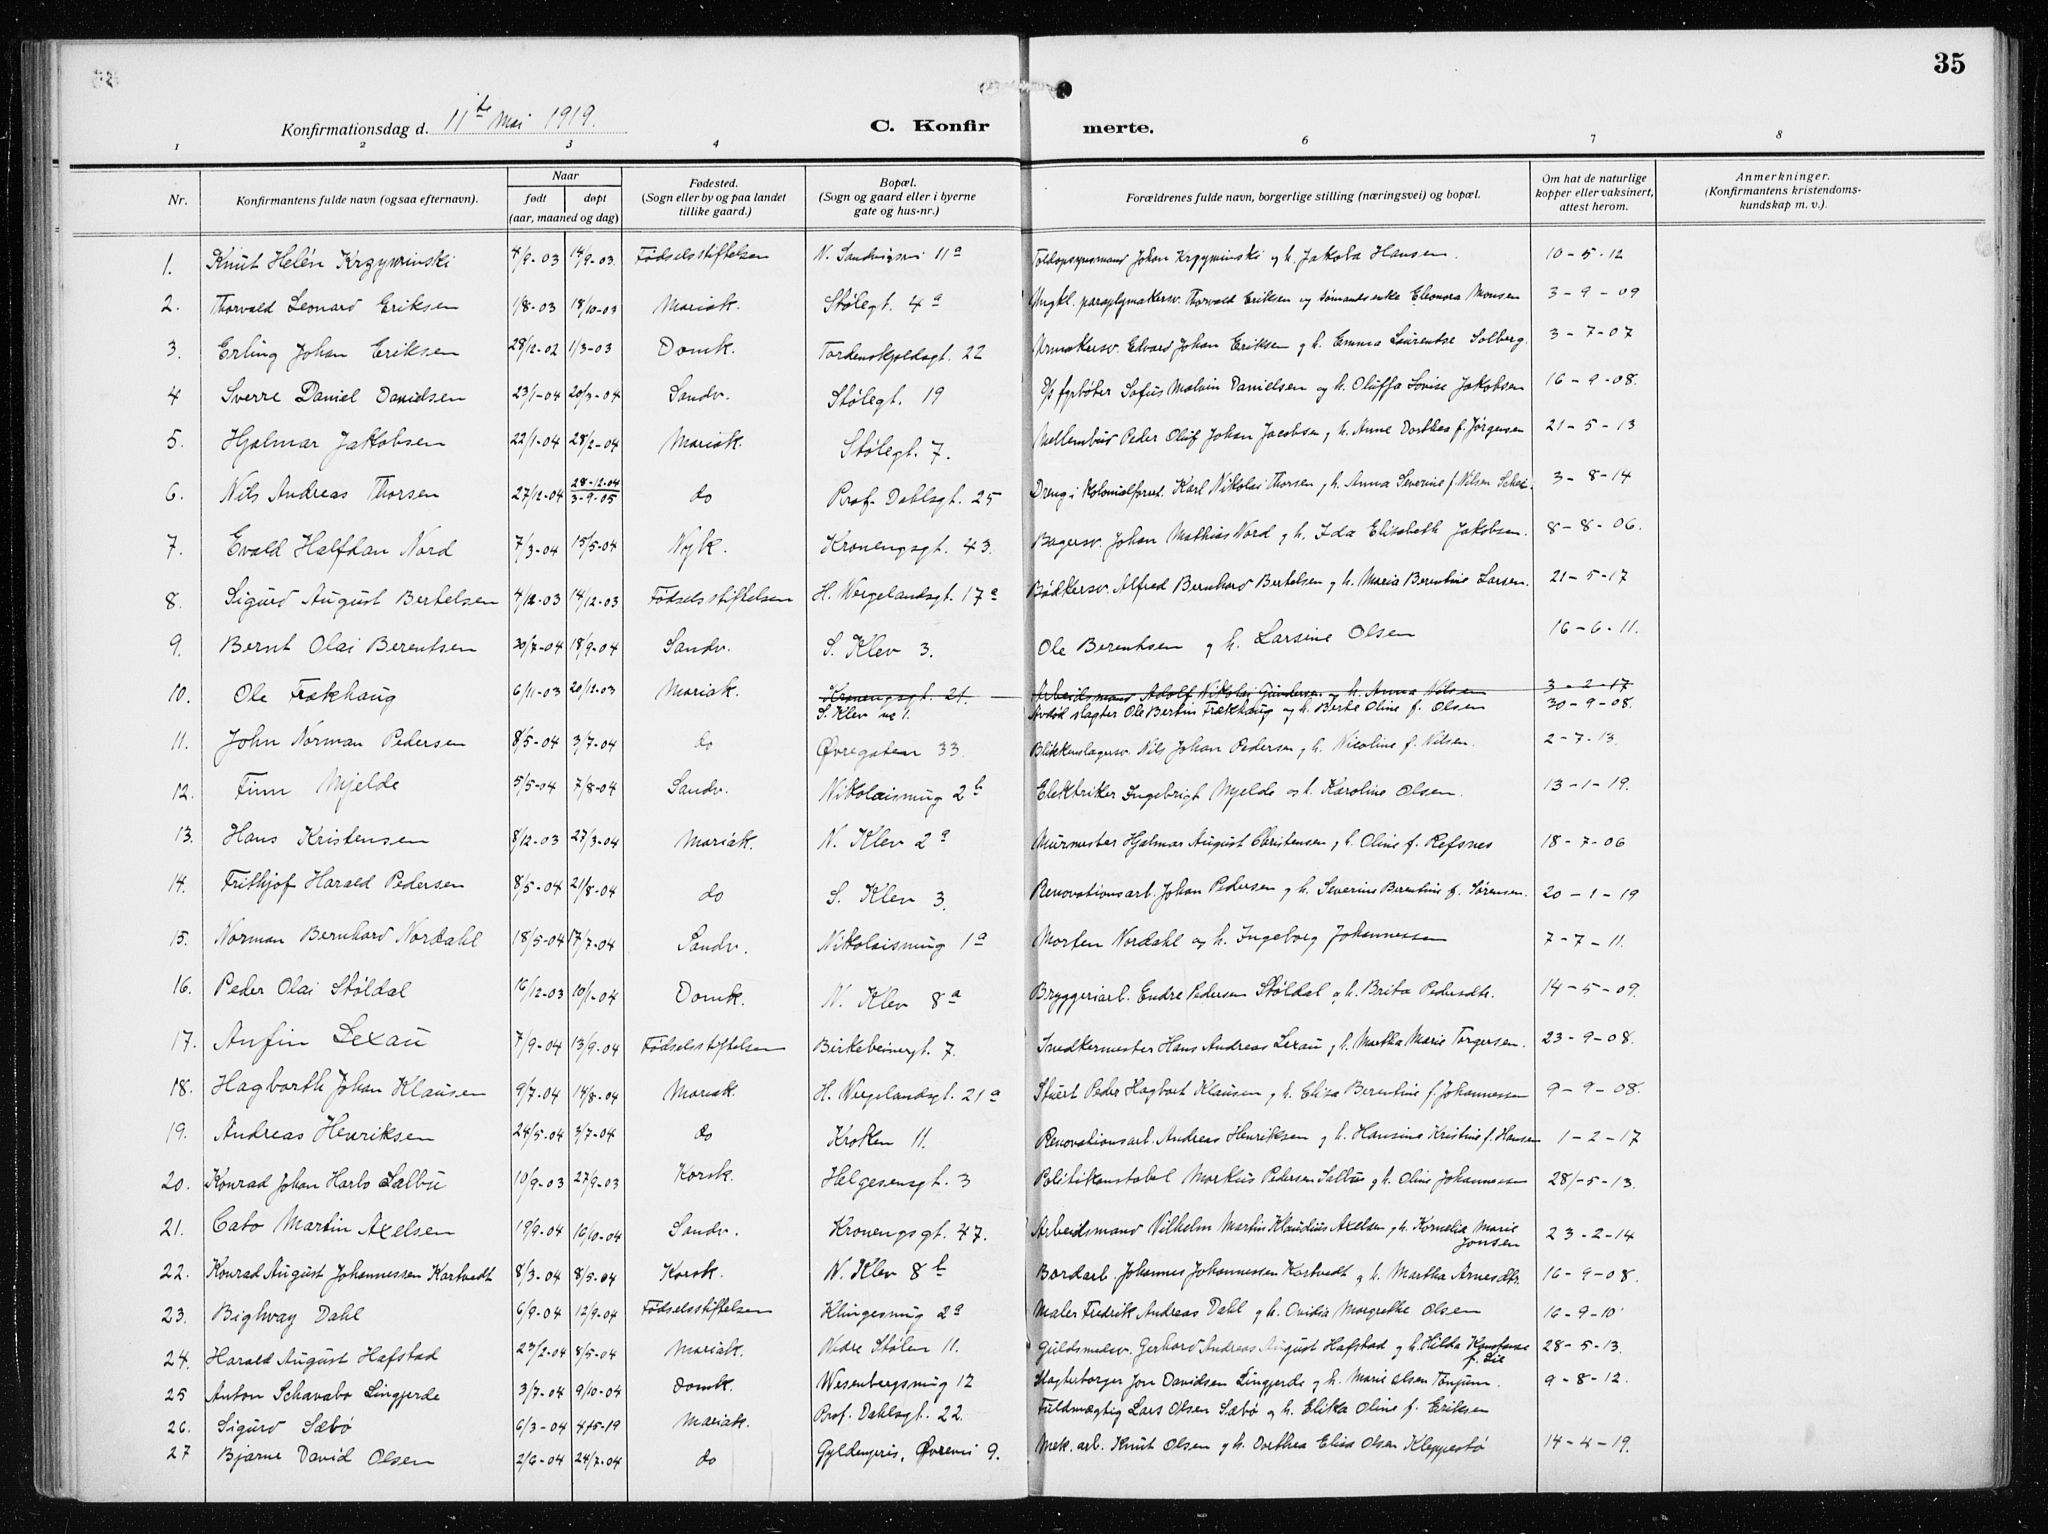 35
Konfirmationsdag d. 11te Mai 1919.
C. Konfirmerte.
1 2 3 4 5 6 7 8
Nr. Konfirmantens fulde navn (ogsaa efternavn). Naar født døpt (aar, maaned og dag) Fødested. (Sogn eller by og paa landet tillike gaard.) Bopæl. (Sogn og gaard eller i byerne gate og hus-nr.) Forældrenes fulde navn, borgerlige stilling (næringsvei) og bopæl. Om hat de naturlige kopper eller vaksinert, attest herom. Anmerkninger. (Konfirmantens kristendoms-kundskap m. v.).
1. Knut Helén Krzyminski 4/9-03 14/9-03. Fødselsstiftelsen N. Sandvigsvei 11a Toldopsynsmand Johan Krzyminski og h. Jakoba Hansen. 10-5-12
2. Thorvald Leonard Eriksen 1/8-03 18/10-03 Mariak. Stølegt. 4a Ungkl. paraplymakersv. Thorvald Eriksen og sømandsenke Eleonora Monsen 3-9-09
3. Erling Johan Eriksen 28/12-02 1/3-03 Domk. Tordenskjoldsgt. 22 Urmakersv. Edvard Johan Eriksen og h. Emma Laurentse Solberg. 3-7-07
4 Sverre Daniel Danidsen 23/1-04 20/3-04 Sandv. Stølegt. 19 D/s fyrbøter Sofus Malvin Danielsen og h. Oluffa Lovise Jakobsen 16-9-08.
5. Hjalmar Jakobsen 22/1-04 28/2-04 Mariak. Stølegt. 7. Mellembud Peder Oluf Johan Jacobsen og h. Anne Dorthea f. Jørgensen 21-5-13
6. Nils Andreas Thorsen 27/12-04 28-12-04 3-9-05 do Prof. Dahlsgt. 25 Dreng i Kolonialforret. Karl Nikolai Thorsen og h. Anna Severine f. Nilsen 3-8-14
7. Evald Halfdan Nord 7/3-04 15/5-04 Nyk. Kronengsgt. 43. Bagersv. Johan Mathias Nord og h. Ida Elisabeth Jakobsen. 8-8-06.
8. Sigurd August Bertelsen 4/12-03 14/12-03 Fødselsstiftelsen H. Wergelandsgt. 17a Bødkersv. Alfred Bernhard Bertelsen og h. Maria Berentine Larsen. 21-5-17
9. Bernt Olai Berentsen 20/7-04 18/9-04 Sandv. S. Klev 3. Ole Berentsen og h. Larsine Olsen 16-6-11.
10. Ole Frækhaug 6/11-03 20/12-03 Mariak. Kronengsgt. 21. Arbeidsmand Adolf Nikolai Gundersen og h. Anna Nilsen 3-2-17
S. Klev no 1. Avdød slagter Ole Bertin Frækhaug og h. Berte Oline f. Olsen 30-9-08.
11. John Norman Pedersen 8/5-04 3/7-04 do Øvregaten 33. Blikkenslagersv. Nils Johan Pedersen og h. Nicoline f. Nilsen. 2-7-13.
12. Finn Mjelde 5/5-04 7/8-04 Sandv. Nikolaismug 2b Elektriker Ingebrigt Mjelde og h. Karoline Olsen. 13-1-19.
13. Hans Kristensen 8/12-03 27/3-04 Mariak. N. Klev 2a Murmester Hjalmar August Christensen og h. Oline f. Refsnes 18-7-06
14. Frithjof Harald Pedersen 8/5-04 21/8-04 do S. Klev 3. Renovationsarb. Johan Pedersen og h. Severine Berentine f. Sørensen. 20-1-19
15. Norman Bernhard Nordahl 18/5-04 17/7-04 Sandv. Nikolaismug 1a Morten Nordahl og h. Ingeborg Johannessen 7-7-11.
16. Peder Olai Støldal 16/12-03 10/1-04 Domk. N. Klev 8a Bryggeriarb. Endre Pedersen Støldal og h. Brita Pedersdtr. 14-5-09.
17. Anfin Lexau 7/9-04 13/9-04 Fødselsstiftelsen Birkebeinergt. 7. Snedkermester Hans Andreas Lexau og h. Martha Marie Torgersen. 23-9-08.
18. Hagbarth Johan Klausen 9/7-04 14/8-04 Mariak. H. Wergelandsgt. 21a Stuert Peder Hagbart Klausen og h. Eliza Berentine f. Johannessen 9-9-08.
19. Andreas Henriksen 24/5-04 3/7-04 do Kroken 11. Renovationsarb. Andreas Henriksen og h. Hansine Kristine f. Hansen 1-2-17
20. Konrad Johan Harbo Salbu 10/9-03 27/9-03 Korsk. Helgesensgt. 3 Politikonstabel Markus Pedersen Salbu og h. Oline Johannessen 28/-5-13.
21. Cato Martin Axelsen 19/9-04 16/10-04 Sandv. Kronengsgt. 47. Arbeidsmand Vilhelm Martin Klaudius Axelsen og h. Kornelia Marie Jonsen 23-2-14
22. Konrad August Johannessen Kartvedt 8/3-04 8/5-04 Korsk. N. Klev 8b Bordarb. Johannes Johannessen Kartvedt og h. Martha Arnesdtr. 16-9-08.
23. Bighvay Dahl 6/9-04 12/9-04 Fødselsstiftelsen Klingesmug 2a Maler Fredrik Andreas Dahl og h. Ovidia Margrethe Olsen 16-9-10
24. Harald August Hafstad 23/2-04 8/5-04 Mariak. Nedre Stølen 11. Guldsmedsv. Gerhard Andreas August Hafstad og h. Hilda Konstanse f. Lie 28-5-13.
25 Anton Schavabo Lingjerde 3/7-04 9/10-04 Domk. Wesenbergsmug 12 Slagterborger Jon Davidsen Lingjerde og h. Marie Olsen Tønjum. 9-8-12.
26. Sigurd Sæbø 6/3-04 4/5-19 Mariak. Prof. Dahlsgt. 22. Fuldmægtig Lars Olsen Sæbø og h. Elika Oline f. Eriksen
27 Bjarne David Olsen 2/6-04 24/7-04 do Gyldenpris, Øvrevei 9. Mek. arb. Knut Olsen og h. Dorthea Elisa Olsen Kleppestø 14-4-19.